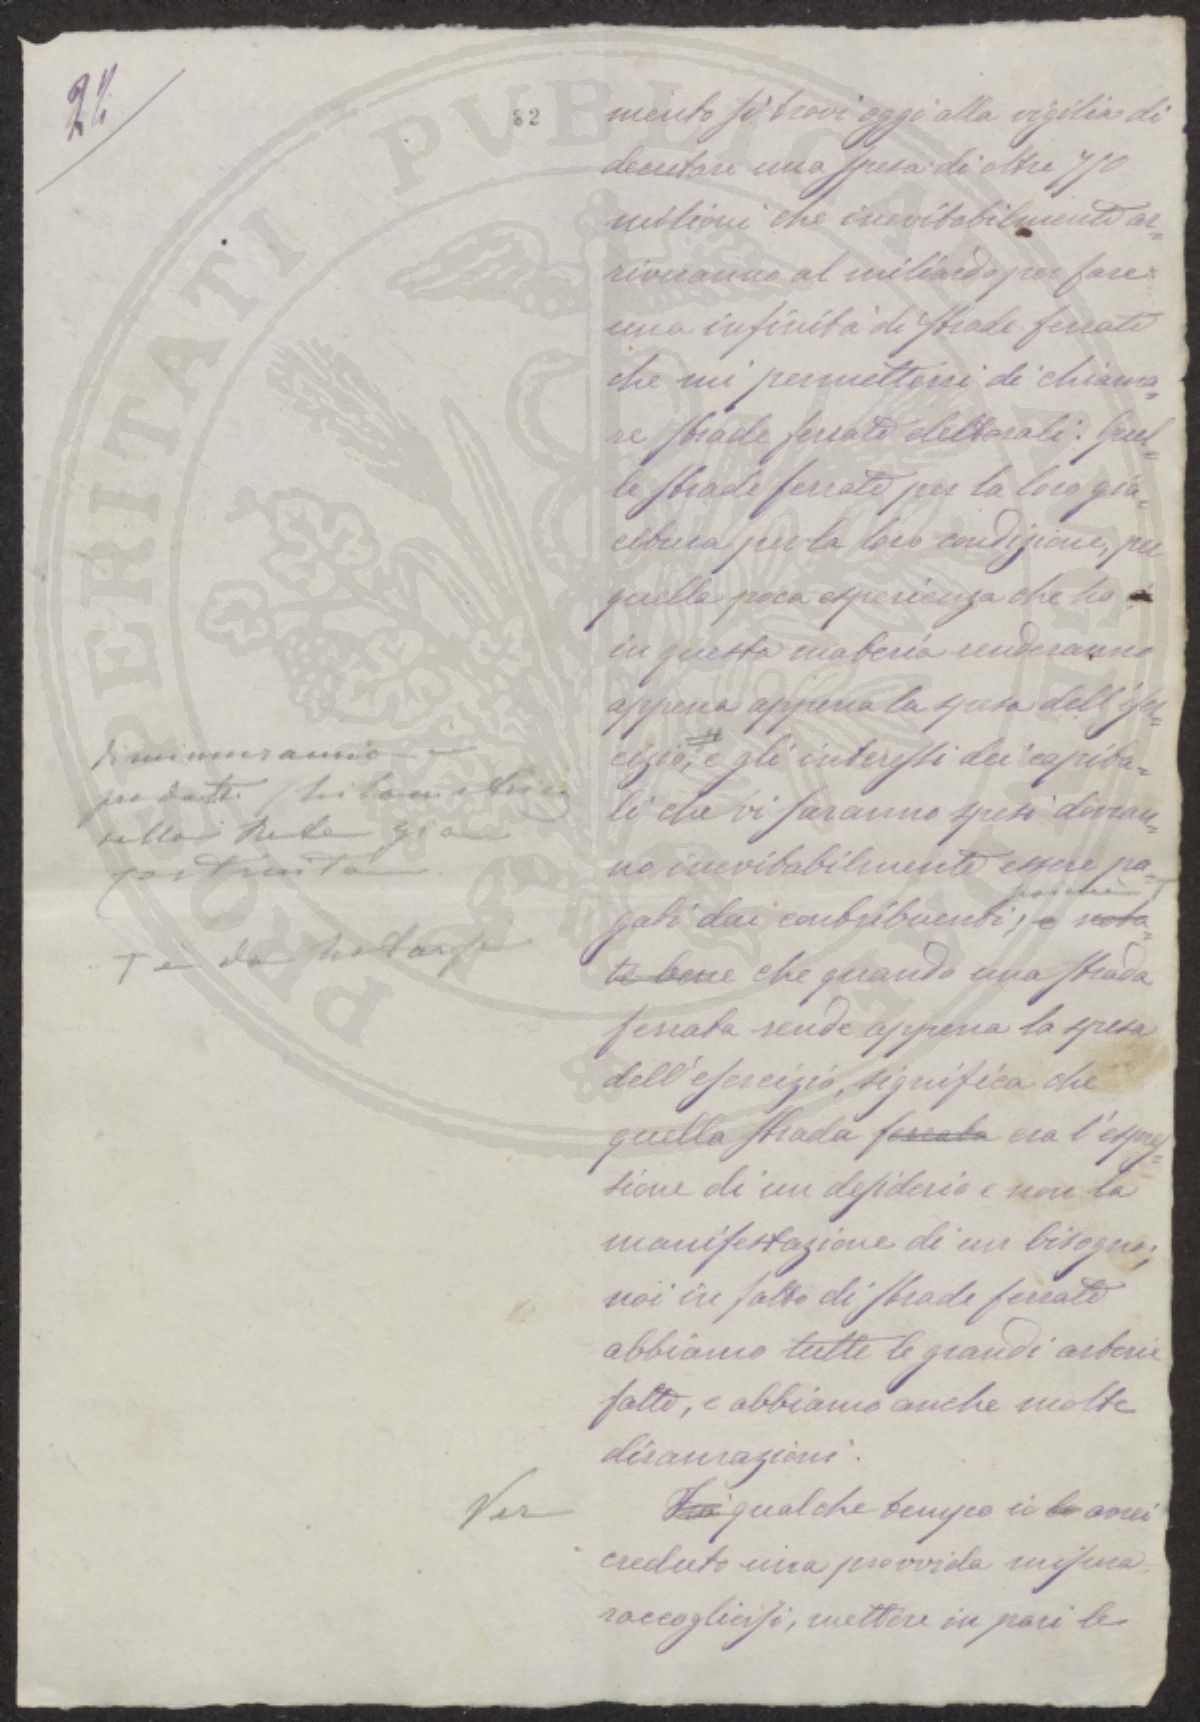 24
82
mento si trovi oggi alla vigilia di
decretare una spesa di oltre 750
milioni che inevitabilmente ar=
riveranno al miliardo per fare
una infinità di strade ferrate
che mi permetterei di chiama=
re strade ferrate elettorali. Quel=
le strade ferrate per la loro gia=
citura per la loro condizione, per
quella poca esperienza che ho
in questa materia renderanno
appena appena la spesa dell'eser=
cizio, e gli interessi dei capita=
li che vi saranno spesi dovran=
no inevitabilmente essere pa=
gati dai contribuenti; e nota=
te bene che quando una strada
ferrata rende appena la spesa
dell'esercizio, significa che
quella strada ferrata era l'espres=
sione di un desiderio e non la
manifestazione di un bisogno;
noi in fatto di strade ferrate
abbiamo tutte le grandi arterie
fatte, e abbiamo anche molte
diramazioni.
qualche tempo io lo avrei
creduto una provvida misura
raccogliersi, mettere in pari le
diminuiranno i
prodotti chilometrici
sulla Rete già
costruita
T è da notarsi
Per
PROSPERITATI PVBLICAE